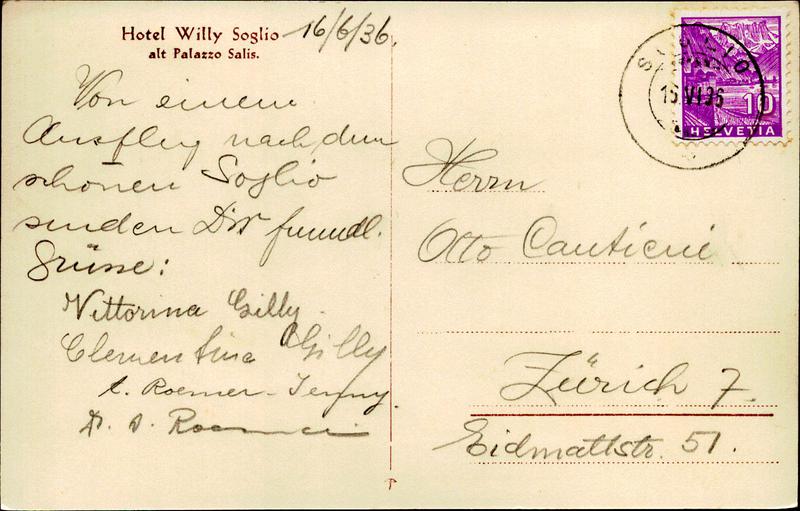 Hotel Willy Soglio 16/6/36.
alt Palazzo Salis.
Von einem
Ausflug nach dem
schönen Soglio
senden Dir freundl.
Grüsse:
Vittorina Gilly
Clementina Gilly
Roemer-Jenny.
SOGLIO
15.VI.36
10
HELVETIA
Herrn
Otto Cantieni
Zürich 7.
Eidmattstr. 51.